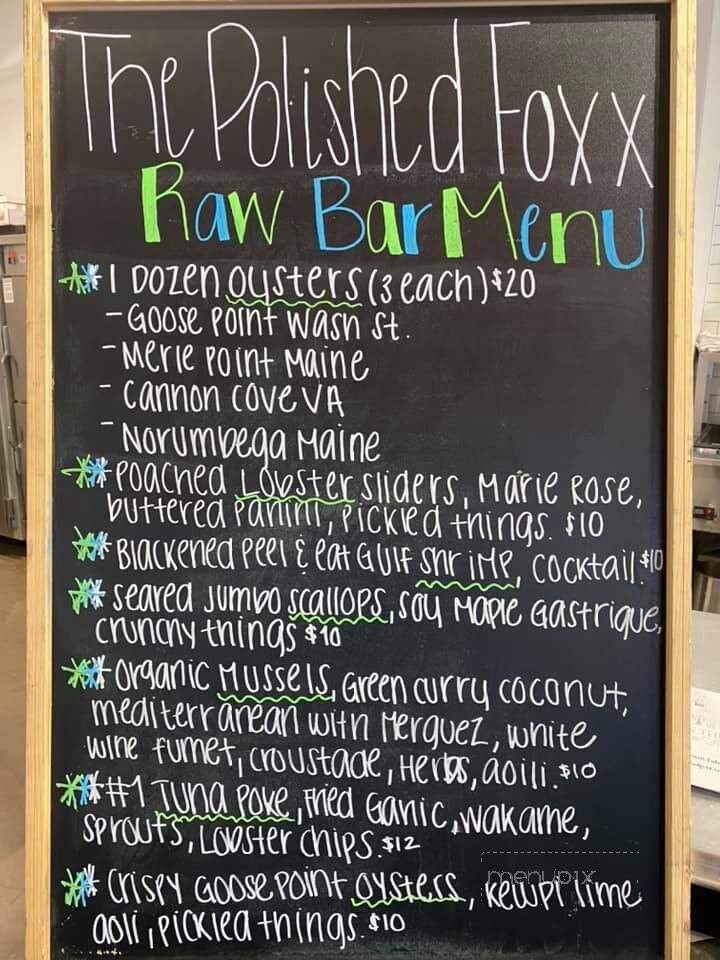 The Polished Foxx
Raw Bar Menu
1 Dozen oysters (3 each) $20
- Goose Point Wash St.
- Merie Point Maine
- Cannon Cove VA
- Norumbega Maine
Poached Lobster sliders, Marie Rose,
buttered Panini, Pickled things. $10
Blackened Peel & eat Gulf Shrimp, Cocktail. $10
Seared Jumbo scallops, soy Maple Gastrique,
crunchy things $10
Organic Mussels, Green curry coconut,
mediterranean with Merguez, white
wine fumet, croustade, Herbs, aoili. $10
#1 Tuna Poke, Fried Garlic, wakame,
sprouts, Lobster chips. $12
Crispy Goose Point oysters, Kewpi lime
aoli, pickled things. $10
menupix